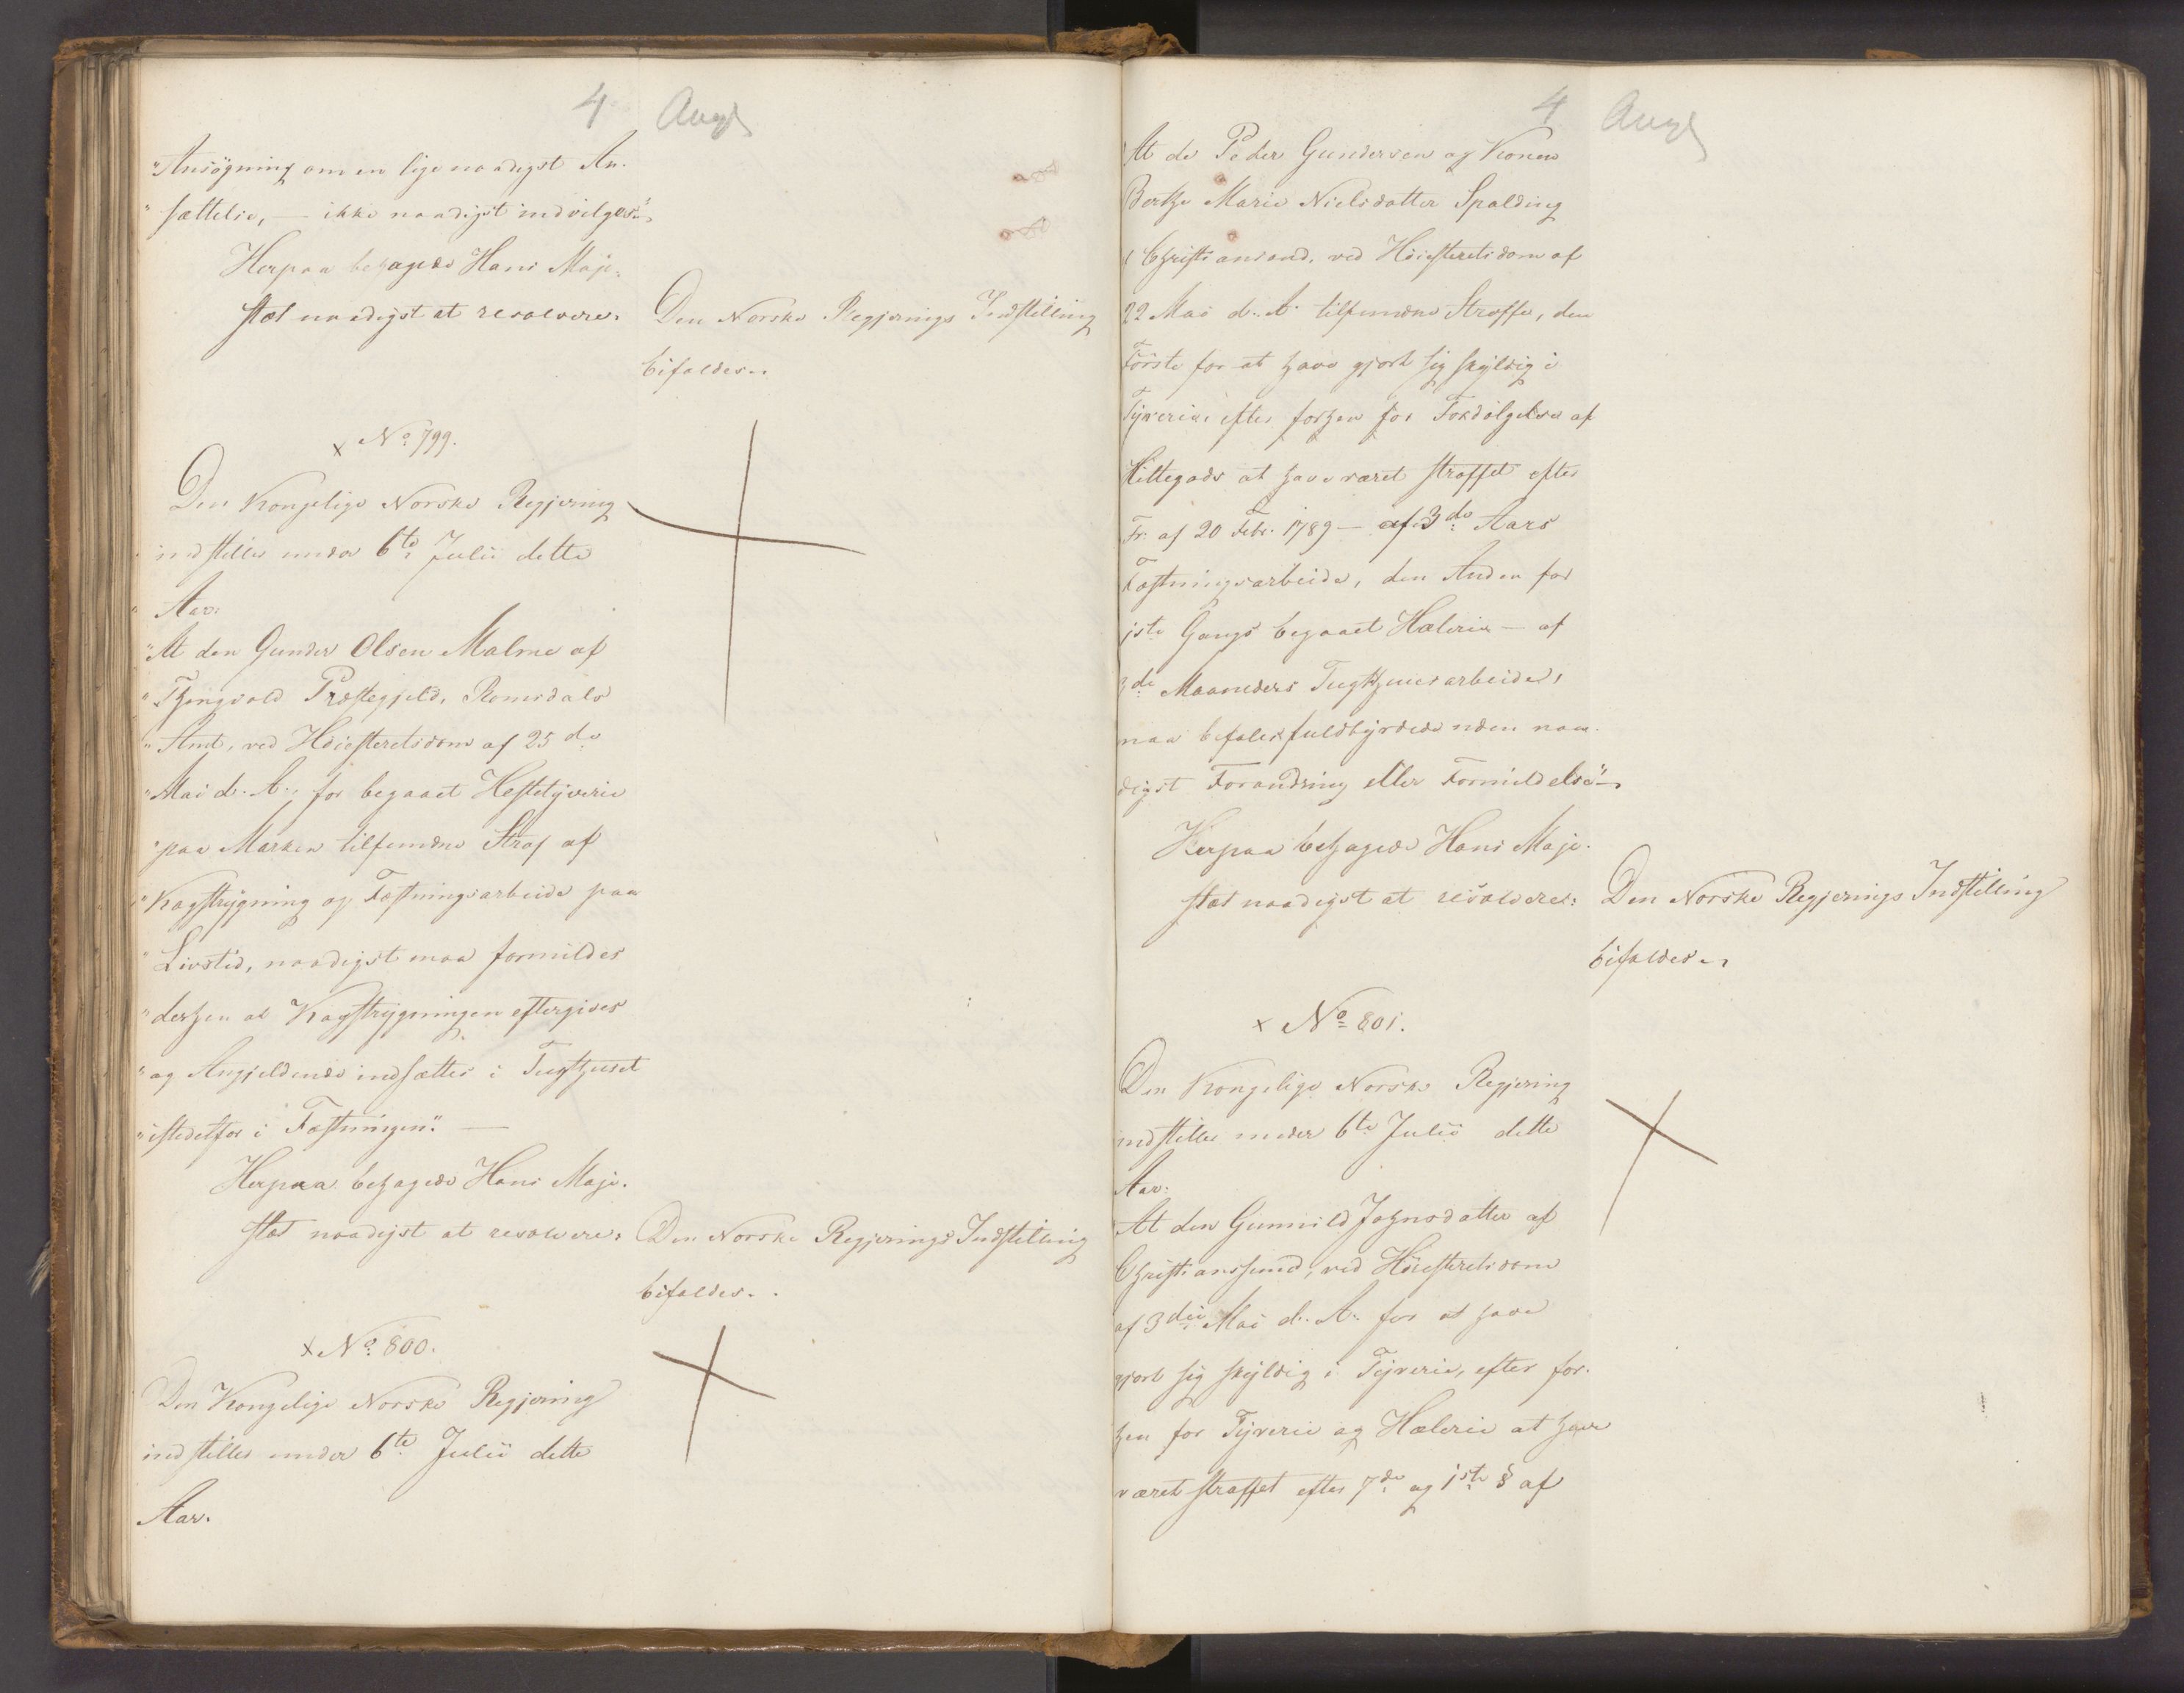 4 Aug
"Ansøgning om en lige naadigst An-
"sættelse, — ikke naadigst indvilges"
Herpaa behagede Hans Maje-
stæt naadigst at resolvere: Den Norske Regjerings Indstilling
bifaldes.
x No 799.
Den Kongelige Norske Regjering
indstiller under 6te Julii dette
Aar:
"At den Gunder Olsen Malme af
"Thingvold Præstegjeld, Romsdals
"Amt, ved Høiesteretsdom af 25de
"Mai d. A., for begaaet Hestetyverie
"paa Marken tilfundne Straf af
"Kagstrygning og Fæstningsarbeide paa
"Livstid, naadigst maa formildes
"derhen at Kagstrygningen eftergives
"og Angjeldende indsættes i Tugthuset
"istedetfor i Fæstningen". —
Herpaa behagede Hans Maje-
stæt naadigst at resolvere: Den Norske Regjerings Indstilling
bifaldes.
x No 800.
Den Kongelige Norske Regjering
indstiller under 6te Julii dette
Aar.
4 Aug
At de Peder Gundersen og Konen
Berthe Marie Nielsdatter Spalding
i Christiansand, ved Høiesteretsdom af
22 Mai d. A. tilfundne Straffe, den
Første for at have gjort sig skyldig i
Tyverie, efter forhen for Fordølgelse af
Hittegods at have været straffet efter
Fr. af 20 Febr. 1789 — af 3de Aars
Fæstningsarbeide, den Anden for
1ste Gangs begaaet Hælerie — af
3de Maaneders Tugthuusarbeide,
maa befales fuldbyrdede uden naa-
digst Forandring eller Formildelse"
Herpaa behagede Hans Maje-
stæt naadigst at resolvere: Den Norske Regjerings Indstilling
bifaldes.
x No 801.
Den Kongelige Norske Regjering
indstiller under 6te Julii dette
Aar:
At den Gunnild Johnsdatter af
Christianssund, ved Høiesteretsdom
af 3die Mai d. A. for at have
gjort sig skyldig i Tyverie, efter for-
hen for Tyverie og Hælerie at have
været straffet efter 7de og 1ste § af